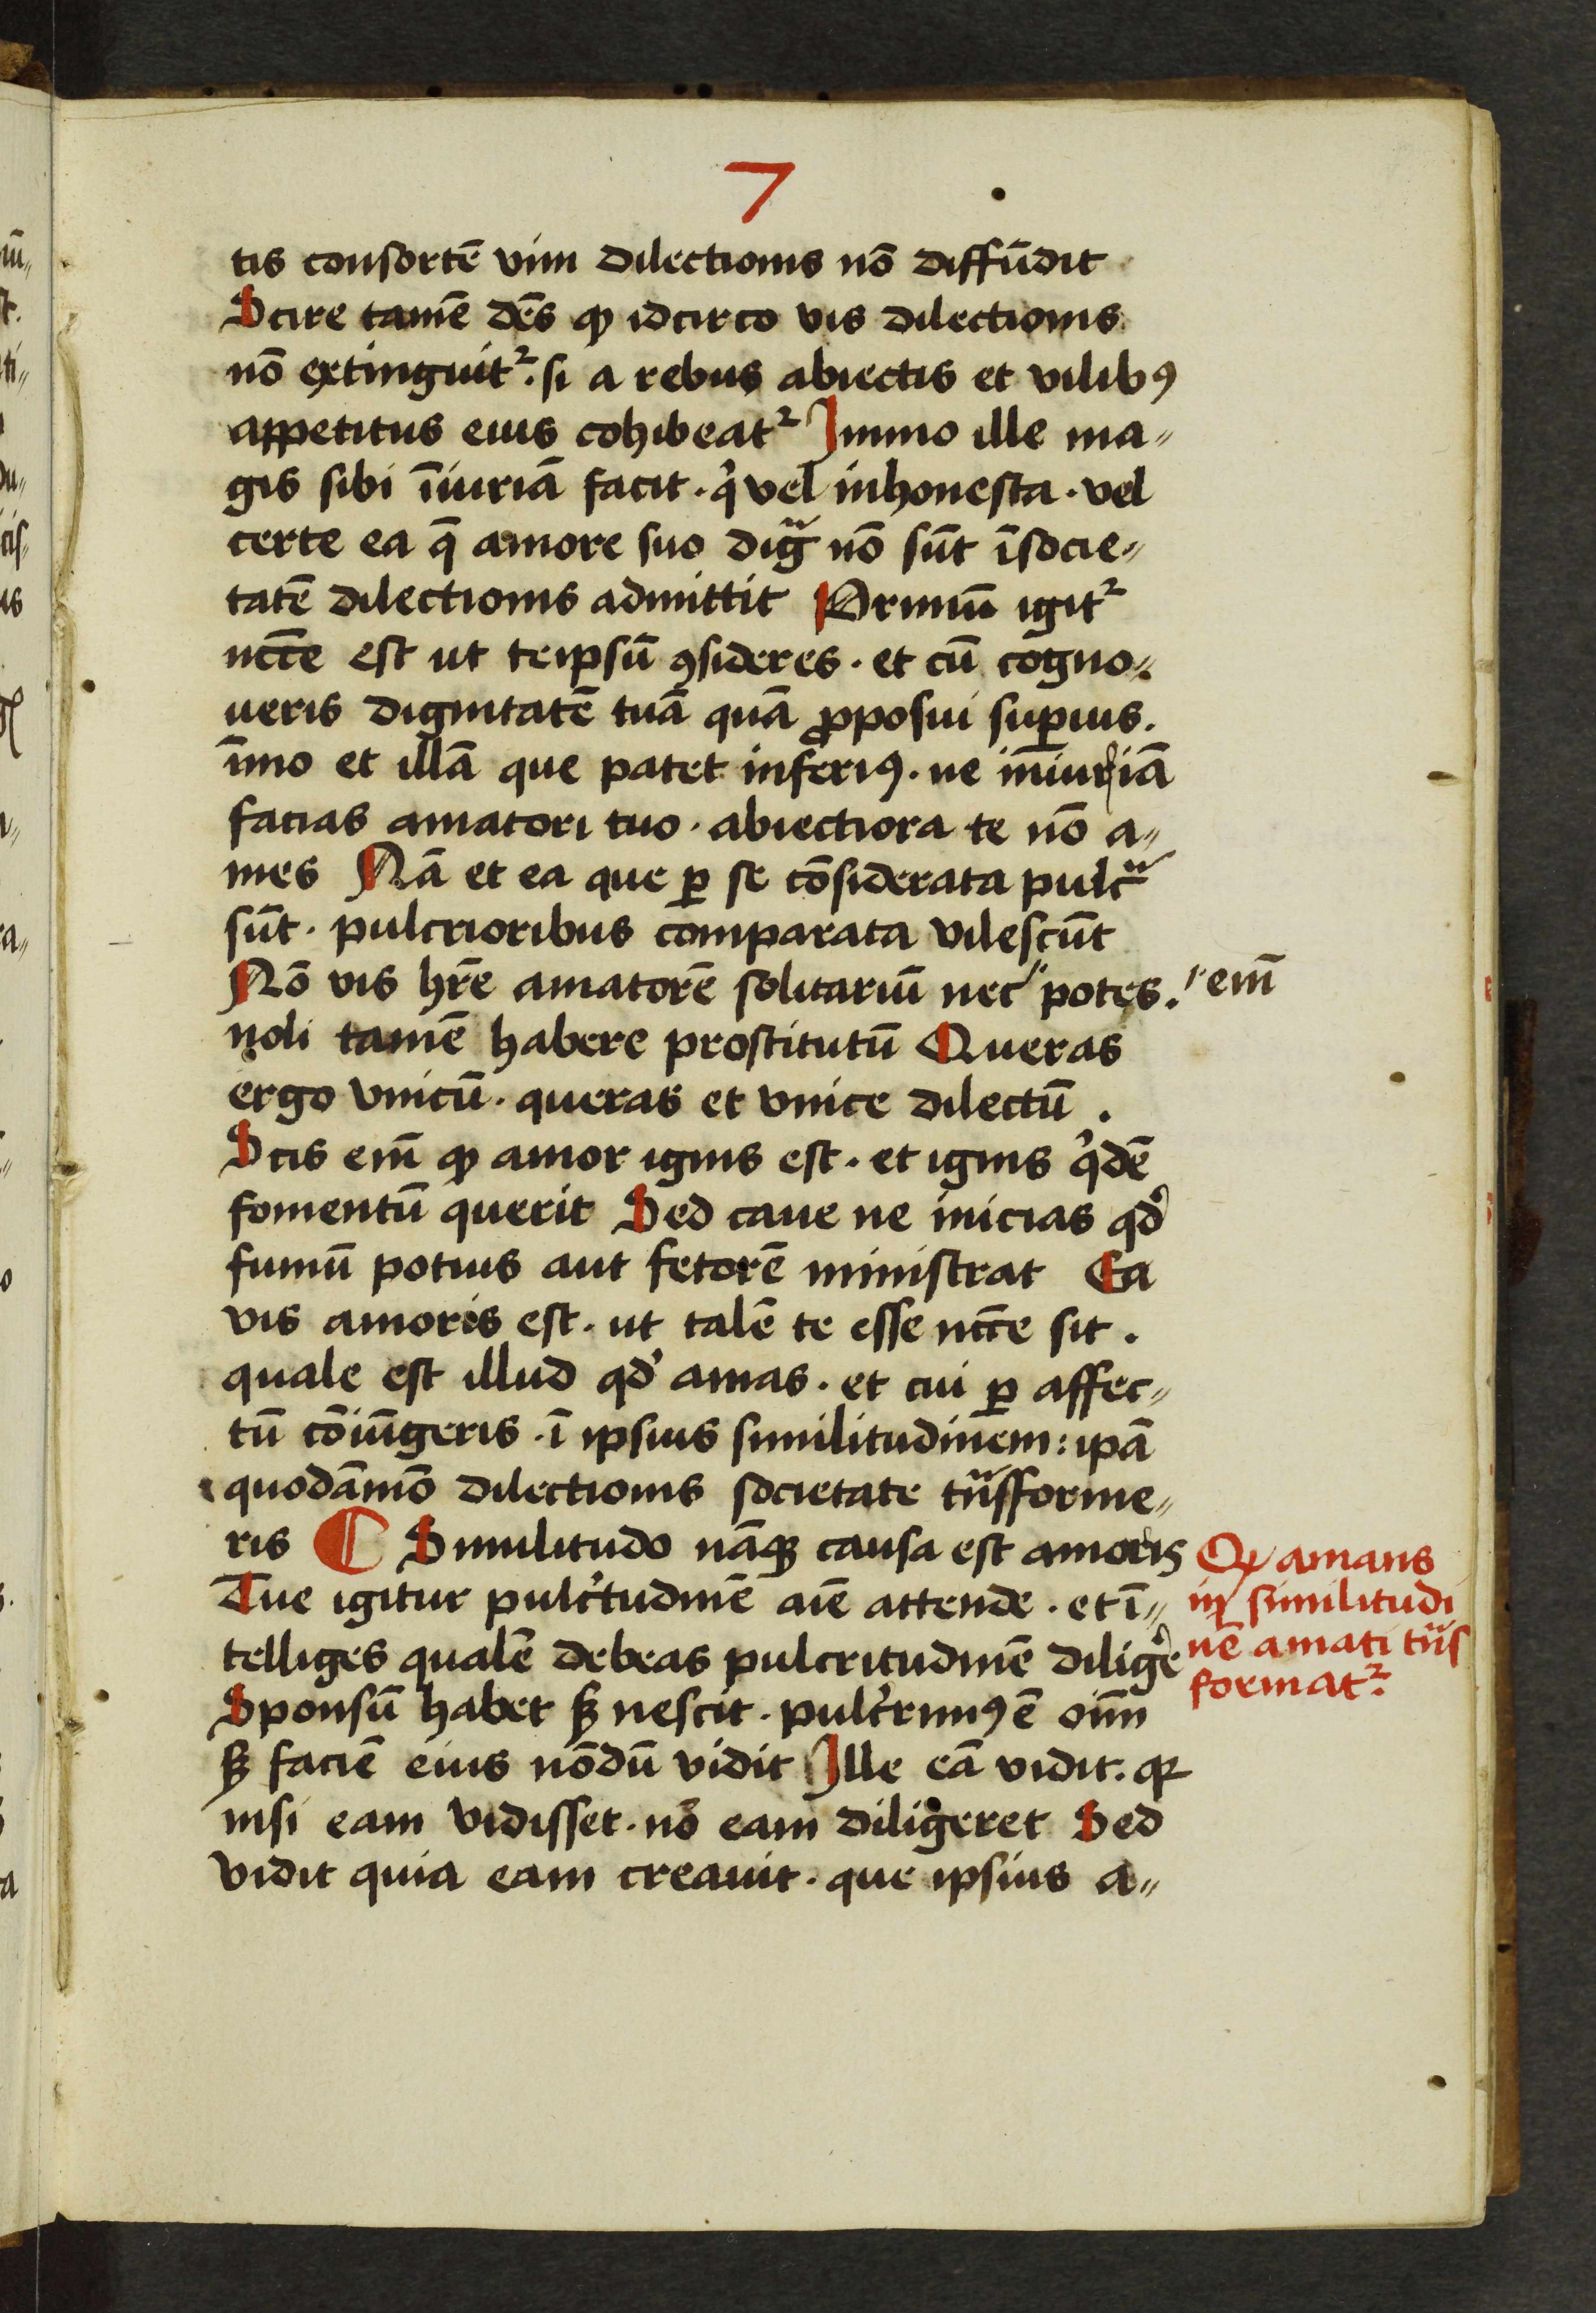 7
tis consortē vim dilectionis nō diffūdit
Scire tamē dēs ꝙ idcirco vis dilectionis
nō extinguit᷑. si a rebus abiectis et vilibꝰ
appetitus eius cohibeat᷑ Immo ille ma„
gis sibi īiuriā facit. qͥ vel inhonesta. vel
certe ea q̄ amore suo digᷓ nō sūt īsocie„
tatē dilectionis admittit Primū igit᷑
nccē̄ est ut teipsū ꝯsideres. et cū cogno„
ueris dignitatē tuā quā ꝓposui superius.
īmo et illā que patet inferiꝰ. ne iniuriā
facias amatori tuo. abiectiora te nō a„
mes Nā et ea que ꝑ se cōsiderata pulcᷓ
sūt. pulcrioribus comparata vilescūt
Nō vis hr̄e amatorē solitariū nec〃 potes. 〃 em̄
noli tamē habere prostitutū Queras
ergo vnicū. queras et vnice dilectū.
Scis em̄ ꝙ amor ignis est. et ignis qͥdē
fomentū querit Sed caue ne inicias qd̓
fumū potius aut fetorē ministrat Ea
vis amoris est. ut talē te esse nccē̄ sit.
quale est illud qd̓ amas. et cui ꝑ affec„
tū cōiūgeris. ī ipsius similitudinem: ipā
quodāmō dilectionis societate tᷓsforme„
ris ¶ Similitudo nāqꝫ causa est amoris
Tue igitur pulcͥtudinē aīe attende. et ī„
telliges qualē debeas pulcritudinē diligē̓
Sponsū habet sꝫ nescit. pulcͥrimꝰ ē oīm
sꝫ faciē eius nōdū vidit Ille eā vidit. qꝛ
nisi eam vidisset. nō eam diligeret Sed
vidit quia eam creauit. que ipsius a„
Ꝙ amans
in similitudi
nē amati tᷓns
format᷑.